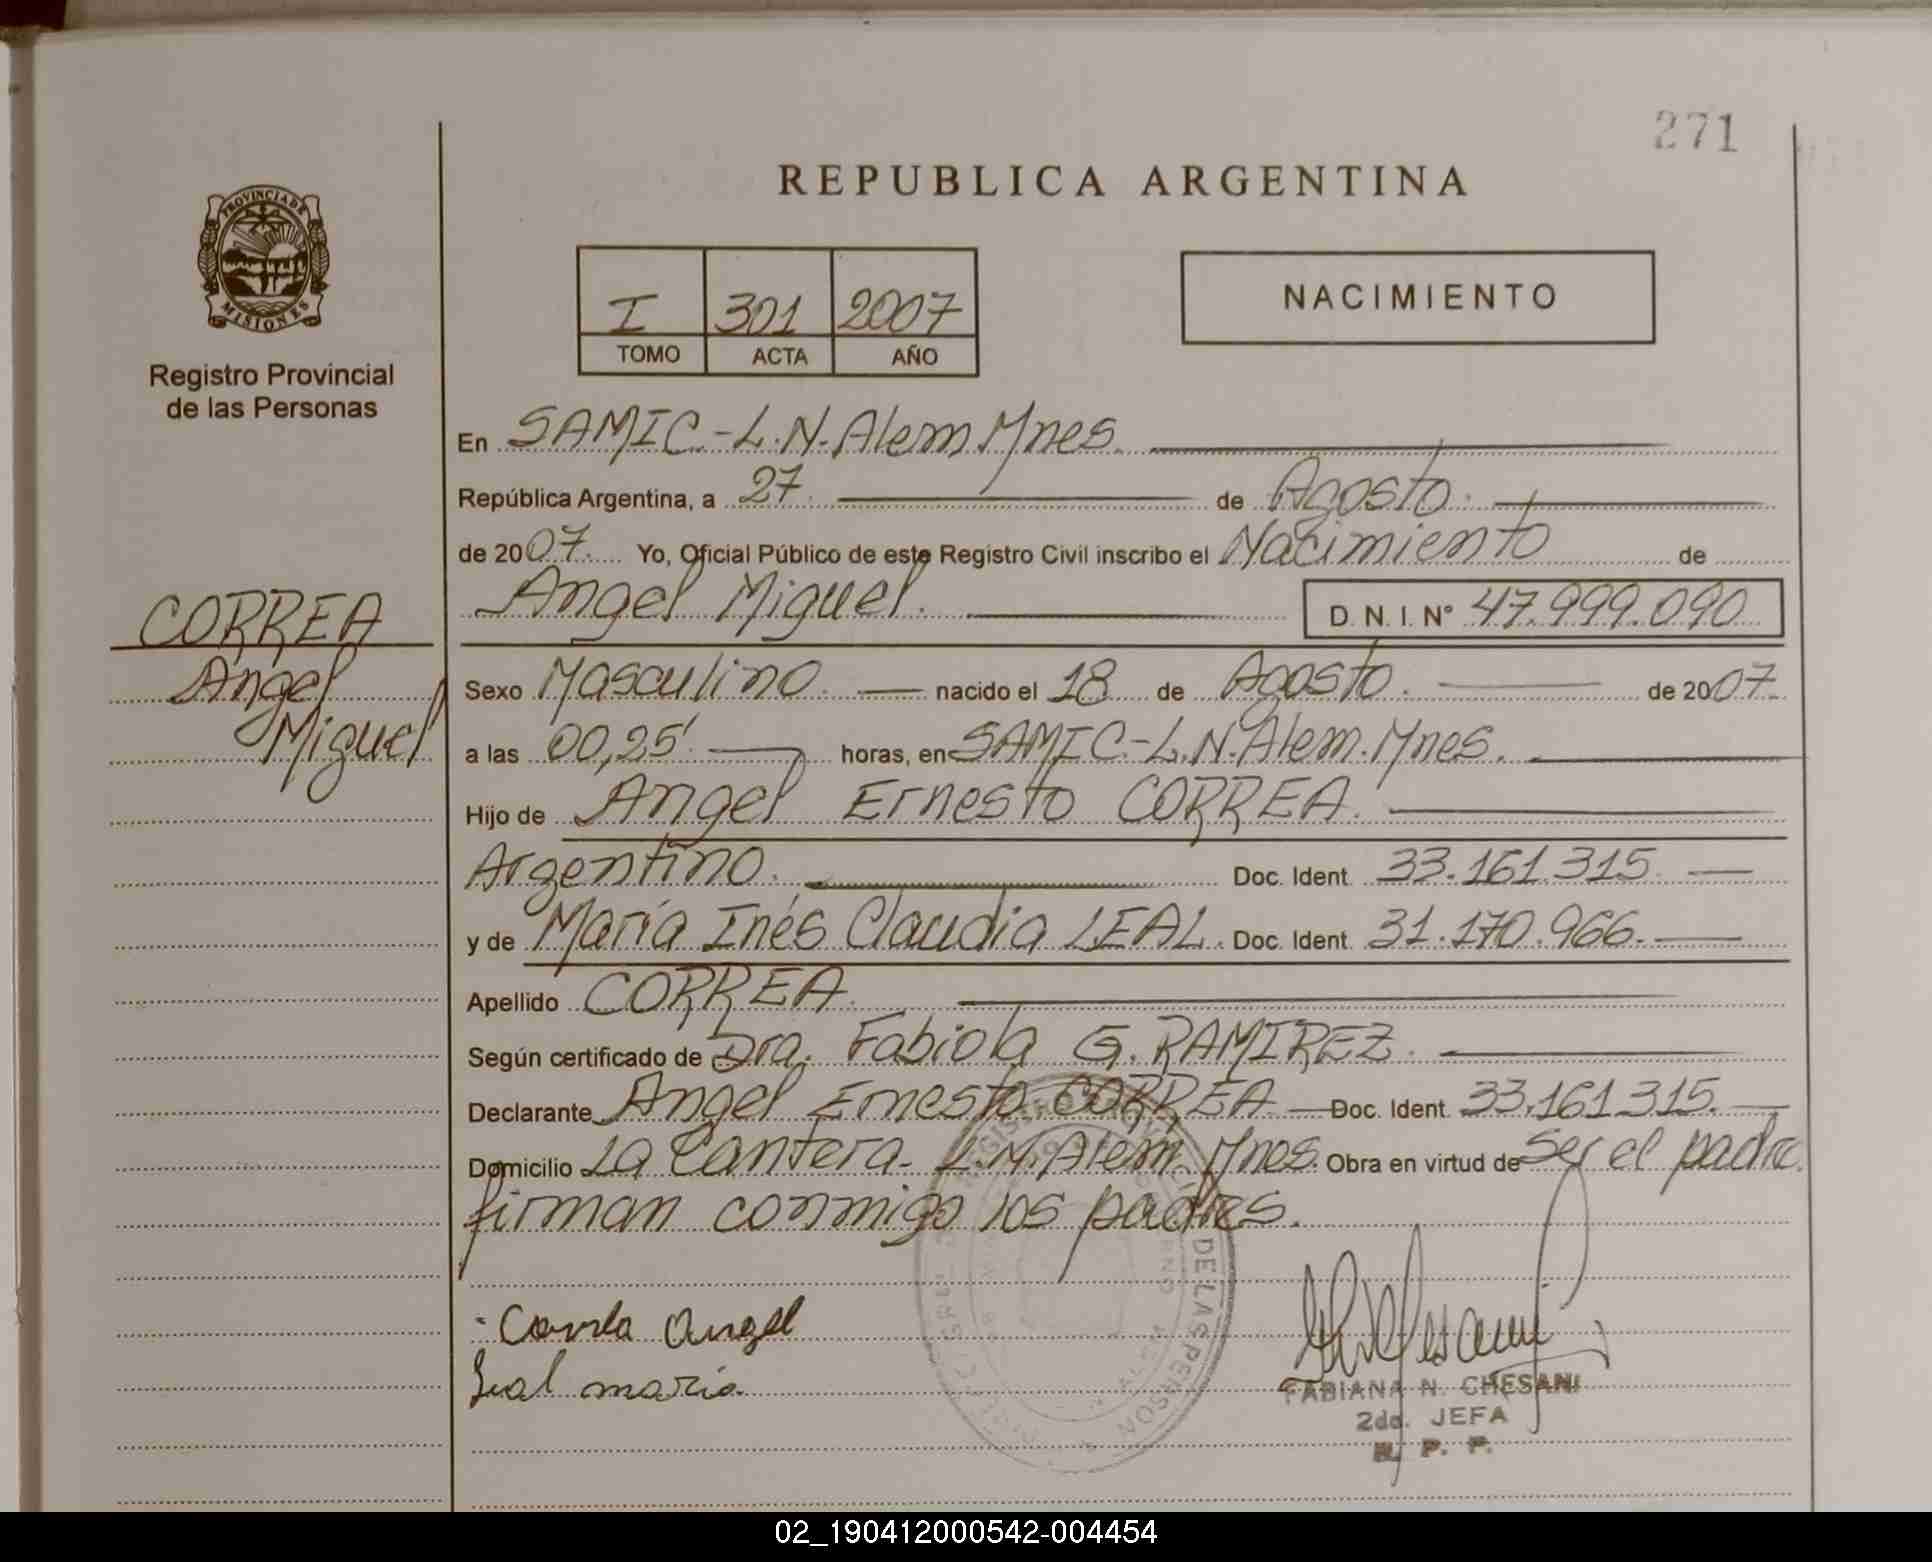 271
REPUBLICA ARGENTINA
PROVINCIA DE
MISIONES
Registro Provincial
de las Personas
I 301 2007
TOMO ACTA AÑO
NACIMIENTO
En SAMIC.-L.N.Alem.Mnes.
República Argentina, a 27. de Agosto.
de 2007. Yo, Oficial Público de este Registro Civil inscribo el Nacimiento de
Angel Miguel. D. N. I. N° 47.999.090
CORREA
Angel
Miguel
Sexo Masculino. nacido el 18 de Agosto. de 2007.
a las 00,25'. horas, en SAMIC-L.N.Alem.Mnes.
Hijo de Angel Ernesto CORREA.
Argentino. Doc. Ident. 33.161.315.
y de María Inés Claudia LEAL. Doc. Ident. 31.170.966.
Apellido CORREA.
Según certificado de Dra. Fabiola G. RAMIREZ.
Declarante Angel Ernesto CORREA. Doc. Ident. 33.161.315.
Domicilio La Cantera. L.N.Alem. Mnes. Obra en virtud de Ser el padre.
firman conmigo los padres.
Correa Angel
Leal maria.
FABIANA N. CHESANI
2da. JEFA
R. P. P.
02_190412000542-004454